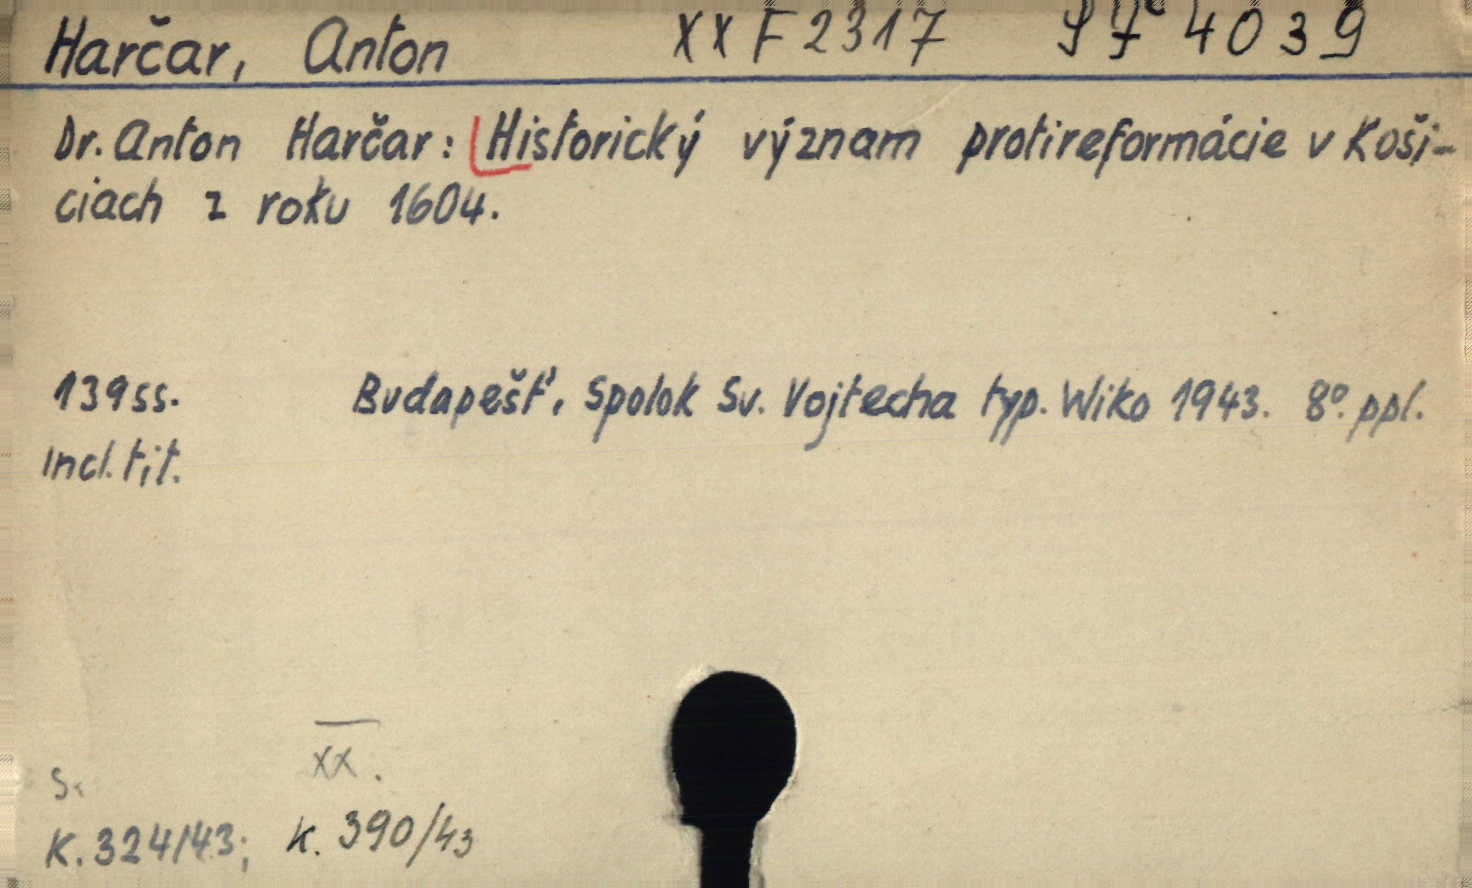 Harčar, Anton XX F 2317 SF 4039
Dr. Anton Harčar: Historický význam protireformácie v Koši-
ciach z roku 1604.
139 ss. Budapešť, Spolok Sv. Vojtecha typ. Wiko 1943. 8º. ppl.
Incl. tit.
XX.
S.
K. 324/43; K. 390/43